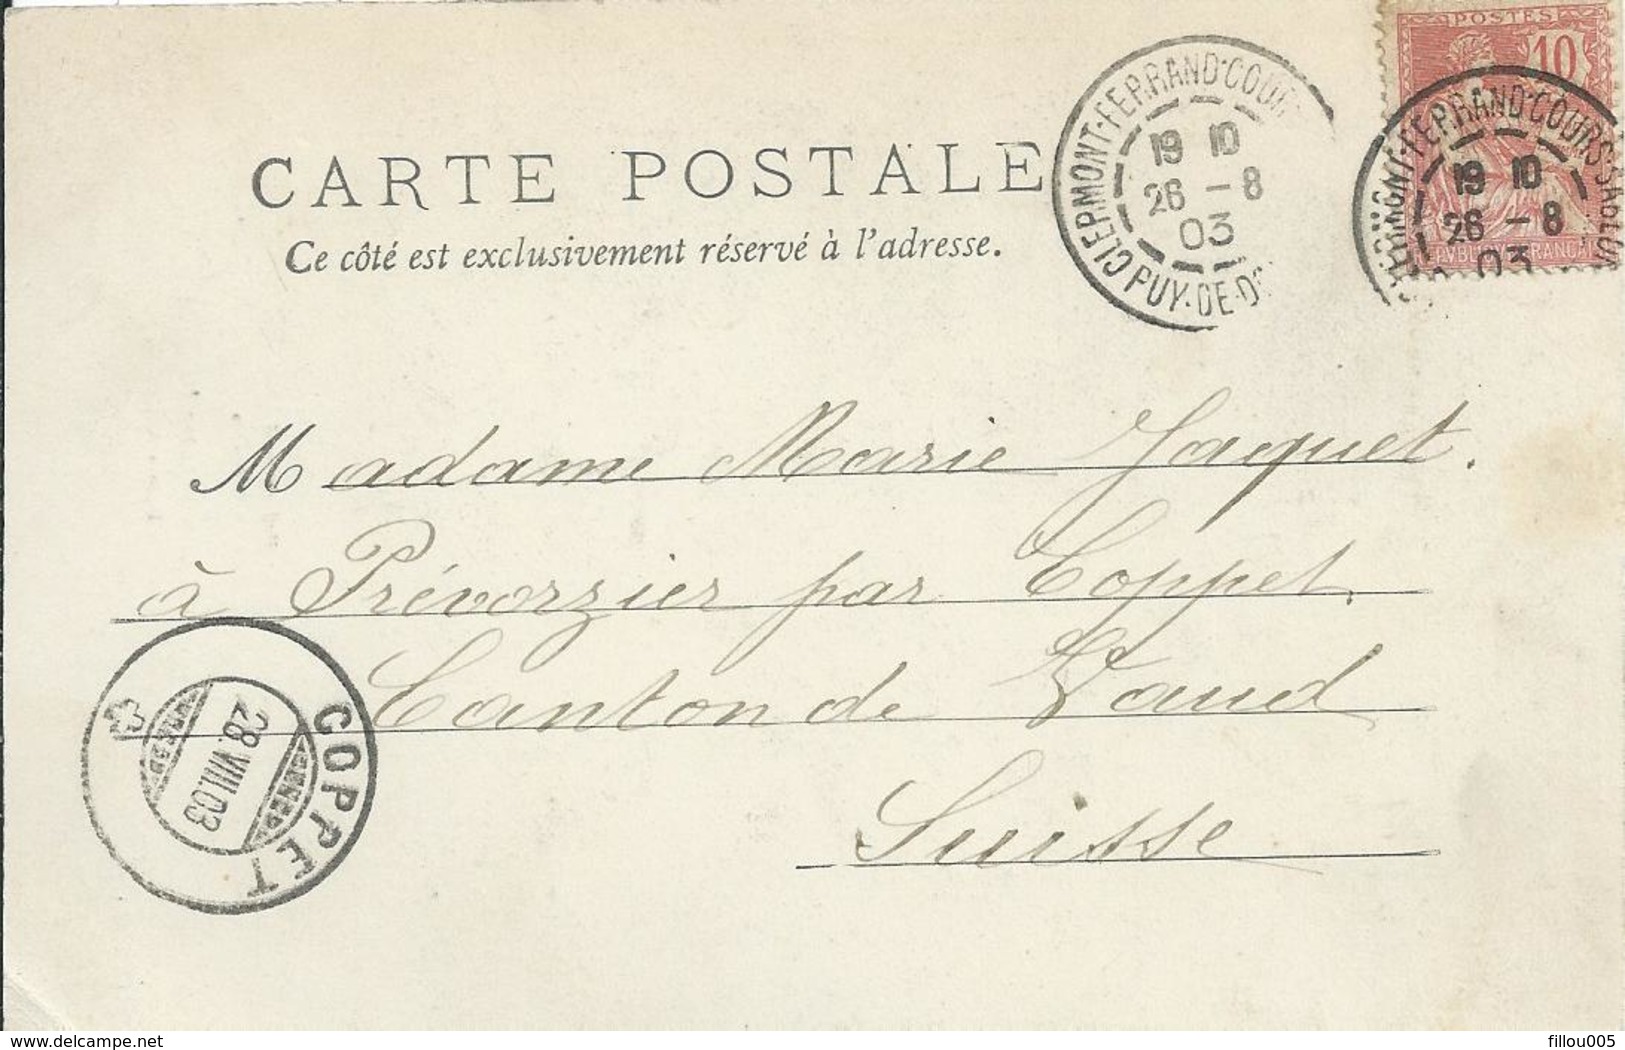 POSTES
10
CLERMONT-FERRAND-COURS-SABLON
19 10
26 - 8
03
CLERMONT-FERRAND-COUR
19 10
26 - 8
03
PUY-DE-D
CARTE POSTALE
Ce côté est exclusivement réservé à l'adresse.
Madame Marie Jaquet.
à Prévorzier par Coppet.
Canton de Vaud
Suisse
COPPET
28.VIII.03
delcampe.net
fillou005